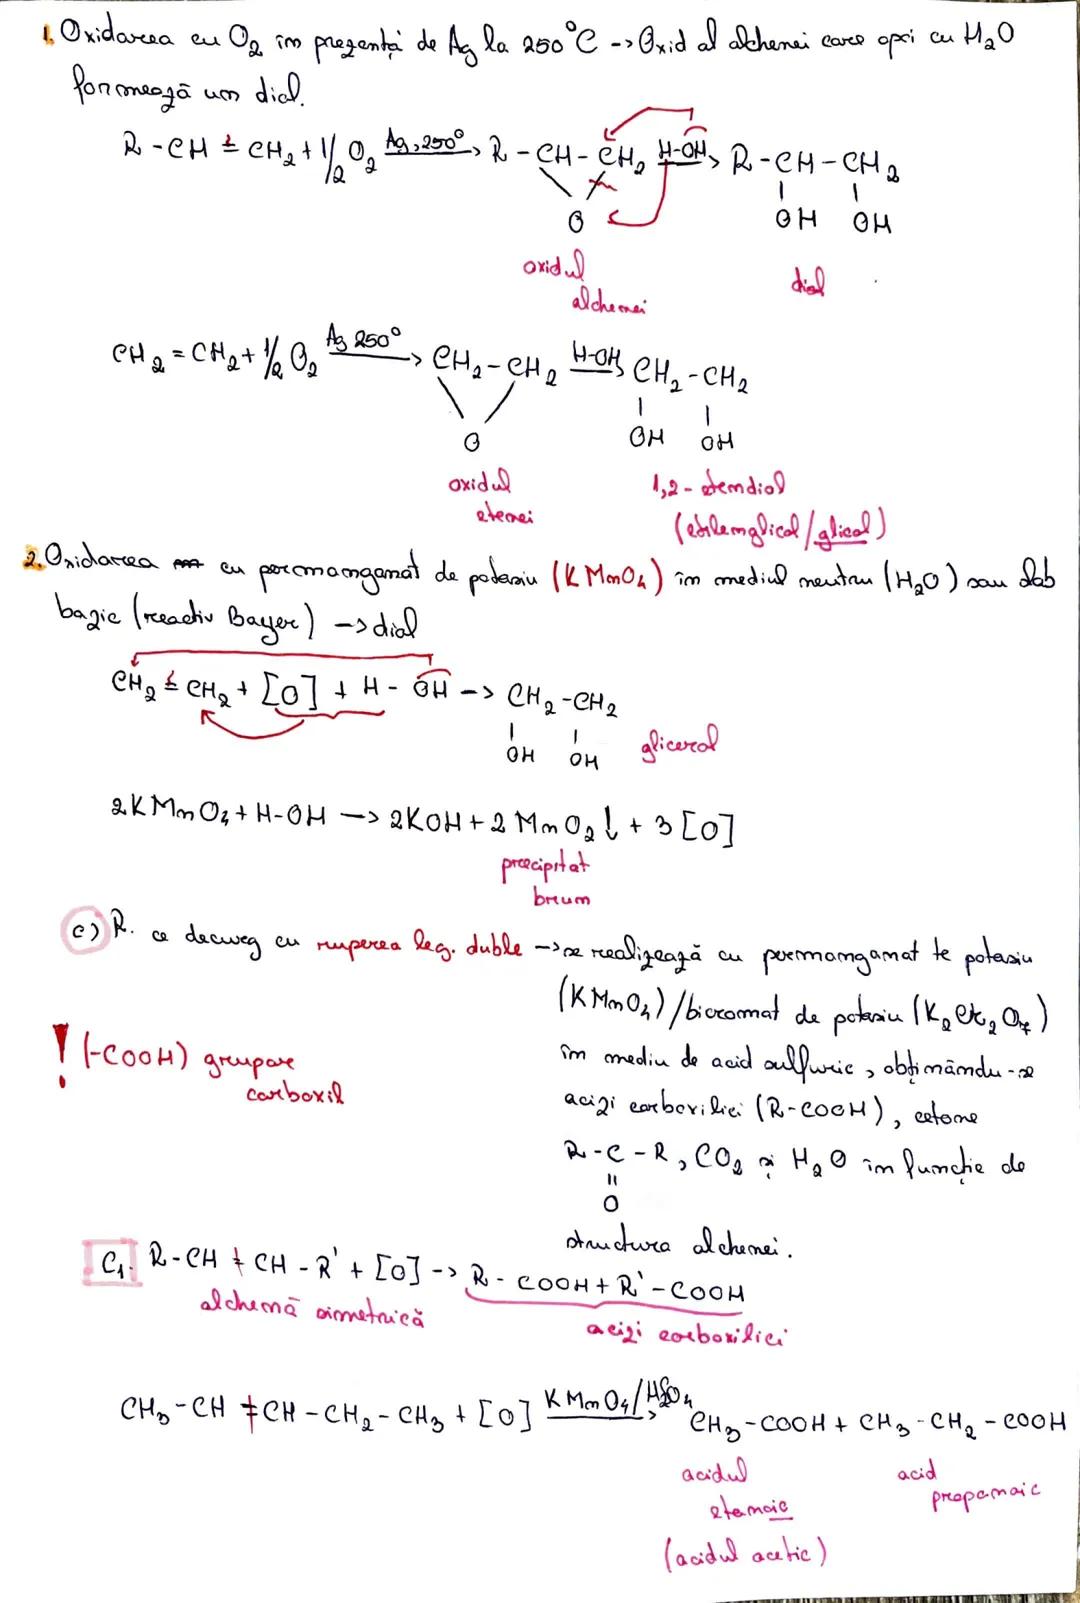 1. Oxidarea cu O₂ în prezență de Ag la 250°C -> Oxid al alchenei care apoi cu H₂O
formează un diol.
R-CH=CH₂ + 1/2 O₂ Ag, 250° -> R-CH-CH₂ H-OH -> R-CH-CH₂
O OH OH
oxidul alchenei diol
CH₂=CH₂ + 1/2 O₂ Ag 250° -> CH₂-CH₂ H-OH -> CH₂-CH₂
O OH OH
oxidul etenei 1,2-etendiol
(etilenglicol/glicol)
2. Oxidarea cu permanganat de potasiu (KMnO₄) în mediul neutru (H₂O) sau slab
bazic (reactiv Bayer) -> diol
CH₂=CH₂ + [O] + H-OH -> CH₂-CH₂
OH OH glicerol
2KMnO₄ + H-OH -> 2KOH + 2MnO₂↓ + 3[O]
precipitat
brum
c) R. ce decurg cu ruperea leg. duble -> se realizează cu permanganat te potasiu
(KMnO₄)/bicromat de potasiu (K₂Cr₂O₇)
! (-COOH) grupare
carboxil
în mediu de acid sulfuric, obținându-se
acizi carboxilici (R-COOH), cetone
R-C-R, CO₂ și H₂O în funcție de
||
O
structura alchenei.
C₁. R-CH=CH-R' + [O] -> R-COOH + R'-COOH
alchenă simetrică acizi carboxilici
CH₃-CH=CH-CH₂-CH₃ + [O] KMnO₄/H₂SO₄ -> CH₃-COOH + CH₃-CH₂-COOH
acidul etanoic acid propanoic
(acidul acetic)